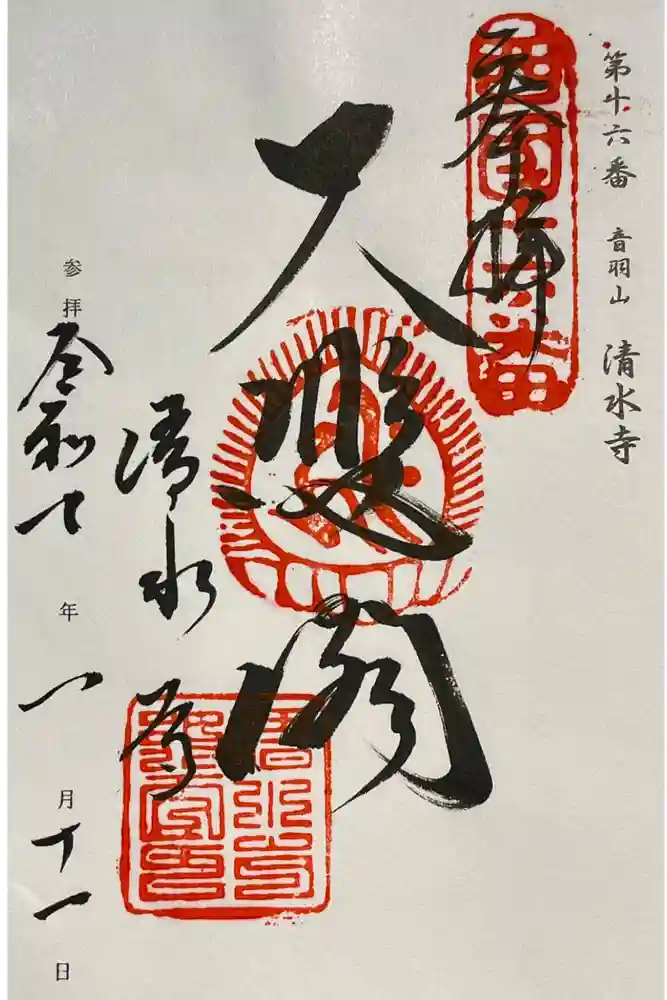 第十六番 音羽山 清水寺
奉拝
西国十六番
大悲閣
清水寺
参拝 令和七年一月十一日